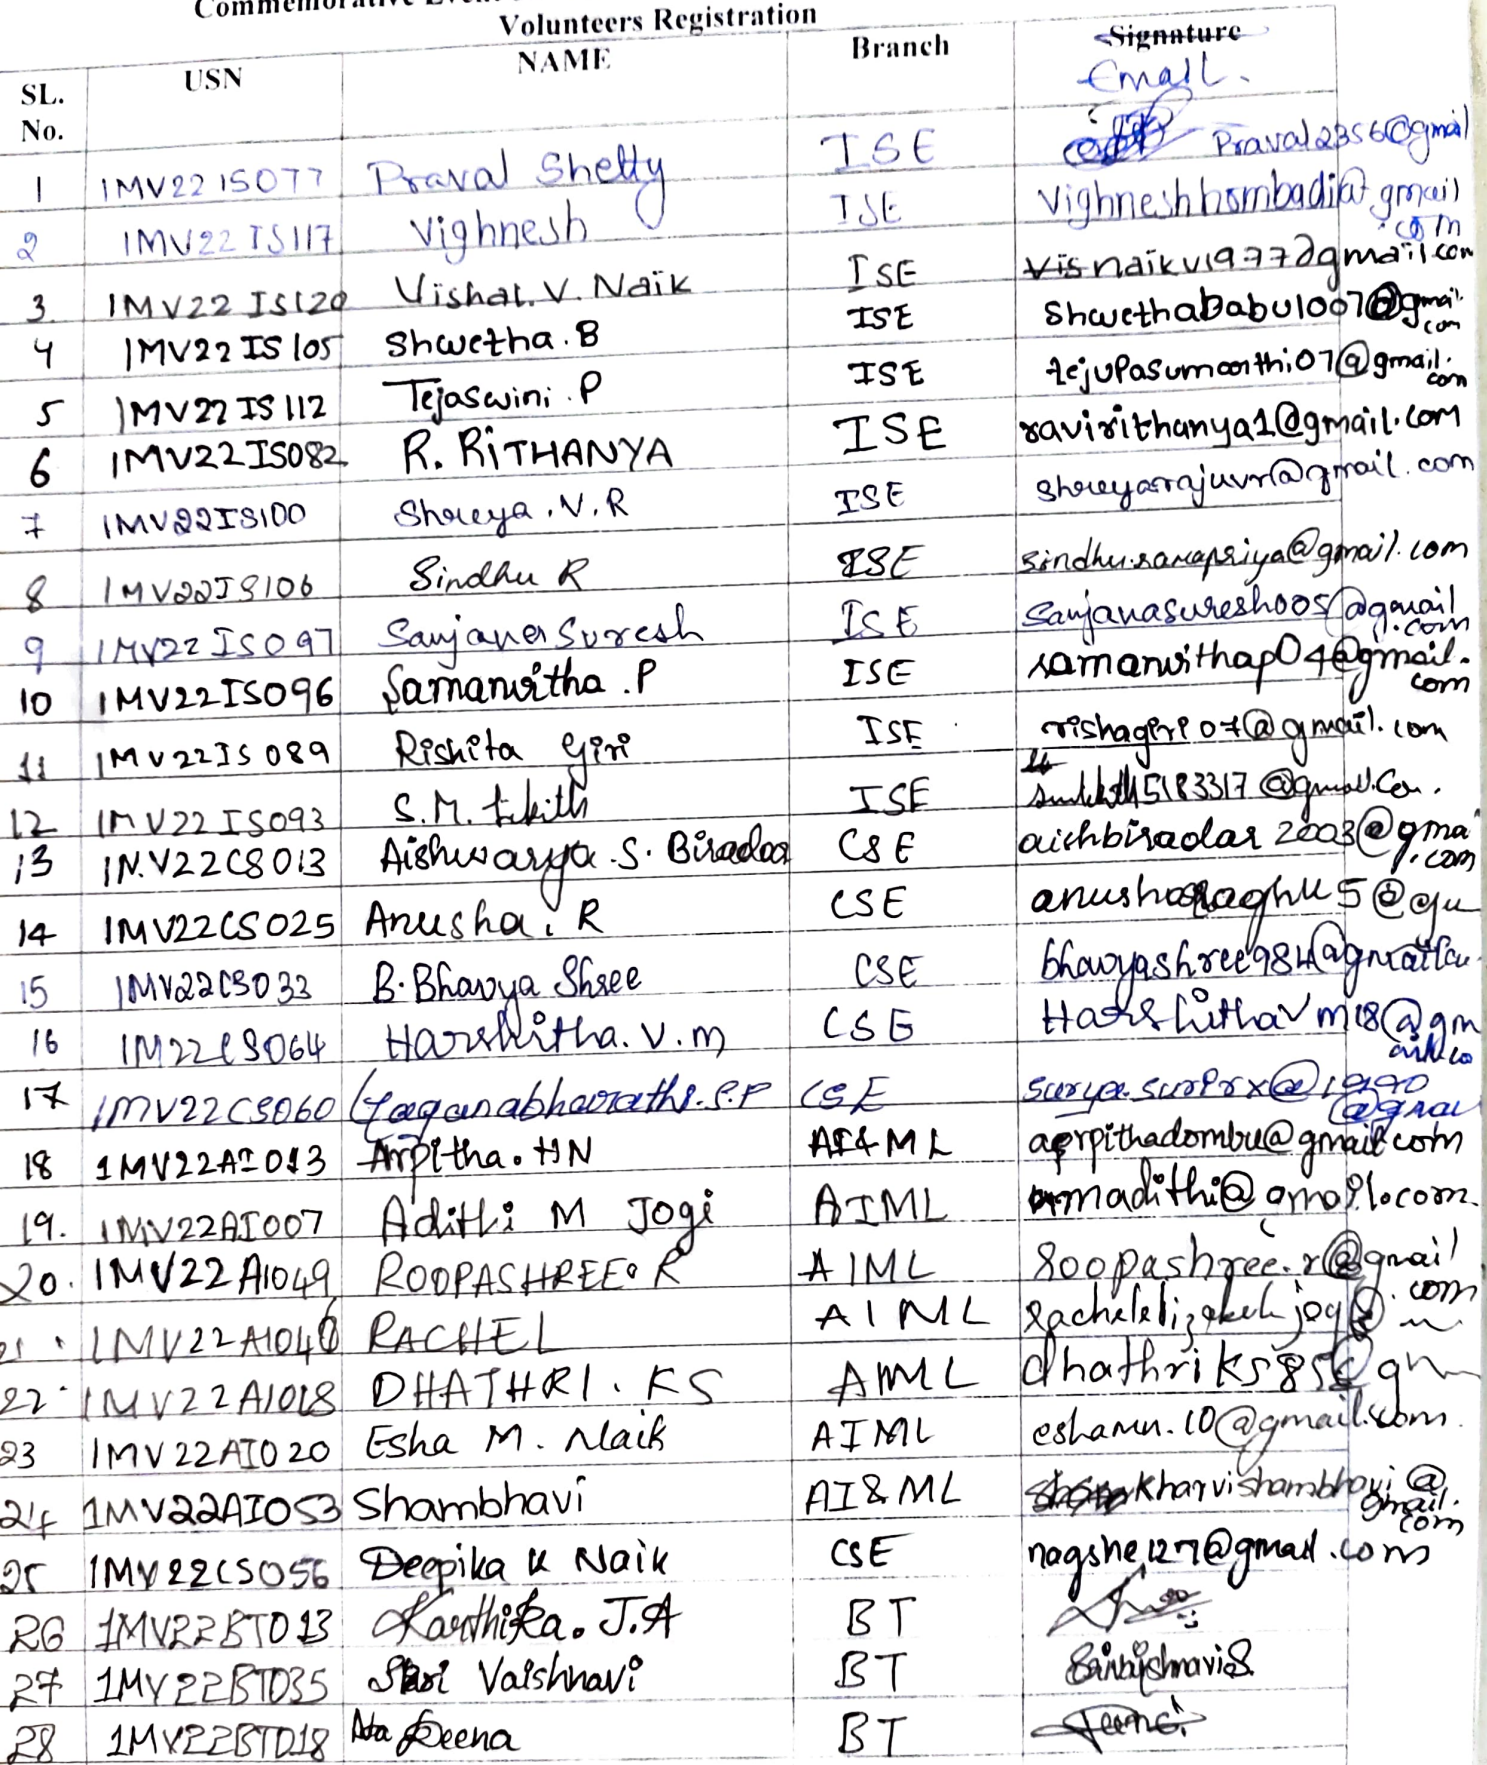 Volunteers Registration
SL. No. USN NAME Branch Signature Email.
1 1MV22IS077 Praval Shetty ISE Praval2356@gmail
2 1MV22IS117 Vighnesh ISE Vighneshhombadi@gmail.com
3 1MV22IS120 Vishal.V.Naik ISE naikv1977@gmail.com
4 1MV22IS105 Shwetha.B ISE Shwethababu1007@gmail.com
5 1MV22IS112 Tejaswini.P ISE tejupasumarthi07@gmail.com
6 1MV22IS082 R.RiTHANYA ISE ravirithanya1@gmail.com
7 1MV22IS100 Shreya.N.R ISE
8 1MV22IS106 Sindhu R ISE sindhu.ramapriya@gmail.com
9 1MV22IS097 Sanjana Suresh ISE Sanjanasuresh005@gmail.com
10 1MV22IS096 Samanvitha.P ISE samanvithap04@gmail.com
11 1MV22IS089 Rishita Giri ISE rishagiri07@gmail.com
12 1MV22IS093 S.M. Likith ISE
13 1MV22CS013 Aishwarya.S.Biradar CSE aishbiradar2003@gma.com
14 1MV22CS025 Anusha.R CSE
15 1MV22CS033 B.Bhavya Shree CSE
16 1M22CS064 Harshitha.V.m CSE HarshithaVm18@gmail.co
17 1MV22CS060 CSE
18 1MV22AI013 Arpitha.HN AI&ML arpithadombu@gmail.com
19. 1MV22AI007 Adithi M Jogi AIML madithi@gmail.com.
20. 1MV22AI049 ROOPASHREE.R AIML roopashree.r@gmail.com
21 1MV22AI046 RACHEL AIML
22 1MV22AI018 DHATHRI.KS AIML
23 1MV22AI020 Esha M. Naik AIML eshamn.10@gmail.com.
24 1MV22AI053 Shambhavi AI&ML Kharvishambhavi@gmail.com
25 1MV22CS056 Deepika K Naik CSE
26 1MV22BT013 Karthika.J.A BT
27 1MV22BT035 Sri Vaishnavi BT
28 1MV22BT018 Deena BT